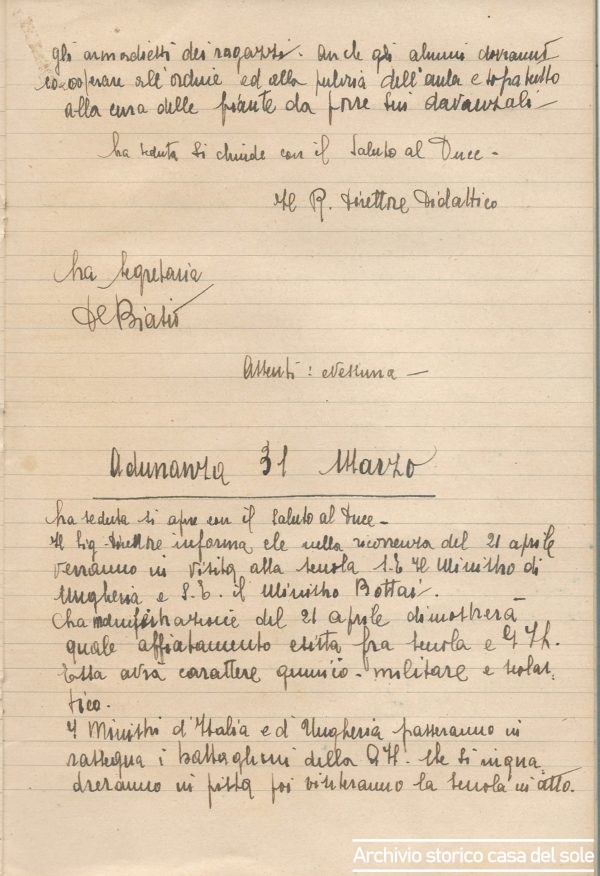 gli armadietti dei ragazzi. Anche gli alunni dovranno
co-operare all'ordine ed alla pulizia dell'aula e sopratutto
alla cura delle piante da porre sui davanzali
La seduta si chiude con il saluto al Duce -
Il R. Direttore Didattico
La Segretaria
De Biasio
Assenti: Nessuna -
Adunanza 31 Marzo
La seduta si apre con il saluto al Duce -
Il Sig. Direttore informa che nella ricorrenza del 21 aprile
verranno in visita alla scuola S.E Il Ministro di
Ungheria e S.E. il Ministro Bottai.
La manifestazione del 21 aprile dimostrerà
quale affiatamento esista fra scuola e G I L.
Essa avrà carattere ginnico-militare e scolas-
tico.
I Ministri d'Italia e d'Ungheria passeranno in
rassegna i battaglioni della GIL. che si inqua
dreranno in pista poi visiteranno la scuola in atto.
Archivio storico casa del sole